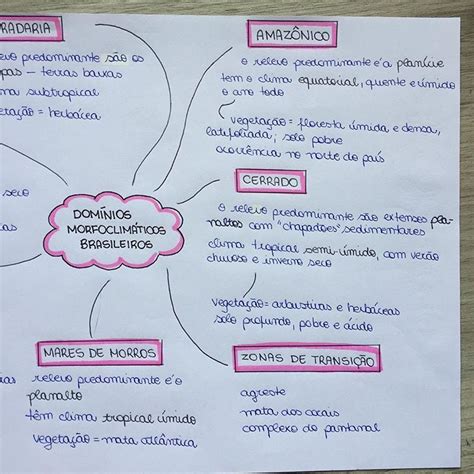 RADARIA
relevo predominante são os
pas - terras baixas
ma subtropical
etação = herbácea
seco
AMAZÔNICO
o relevo predominante é a planície
tem o clima equatorial, quente e úmido
o ano todo
vegetação = floresta úmida e densa,
latifoliada; solo pobre
ocorrência no norte do país
DOMÍNIOS
MORFOCLIMÁTICOS
BRASILEIROS
CERRADO
o relevo predominante são extensos pla-
naltos com "chapadões" sedimentares
clima tropical semi-úmido, com verão
chuvoso e inverno seco
vegetação = arbustivas e herbáceas
solo profundo, pobre e ácido
MARES DE MORROS
relevo predominante é o
planalto
têm clima tropical úmido
vegetação = mata atlântica
ZONAS DE TRANSIÇÃO
agreste
mata dos cocais
complexo do pantanal